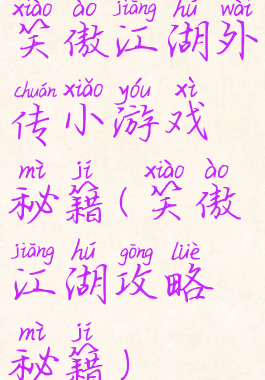 xiào ào jiāng hú wài
笑傲江湖外
chuán xiǎo yóu xì
传小游戏
mì jí xiào ào
秘籍(笑傲
jiāng hú gōng lüè
江湖攻略
mì jí
秘籍)